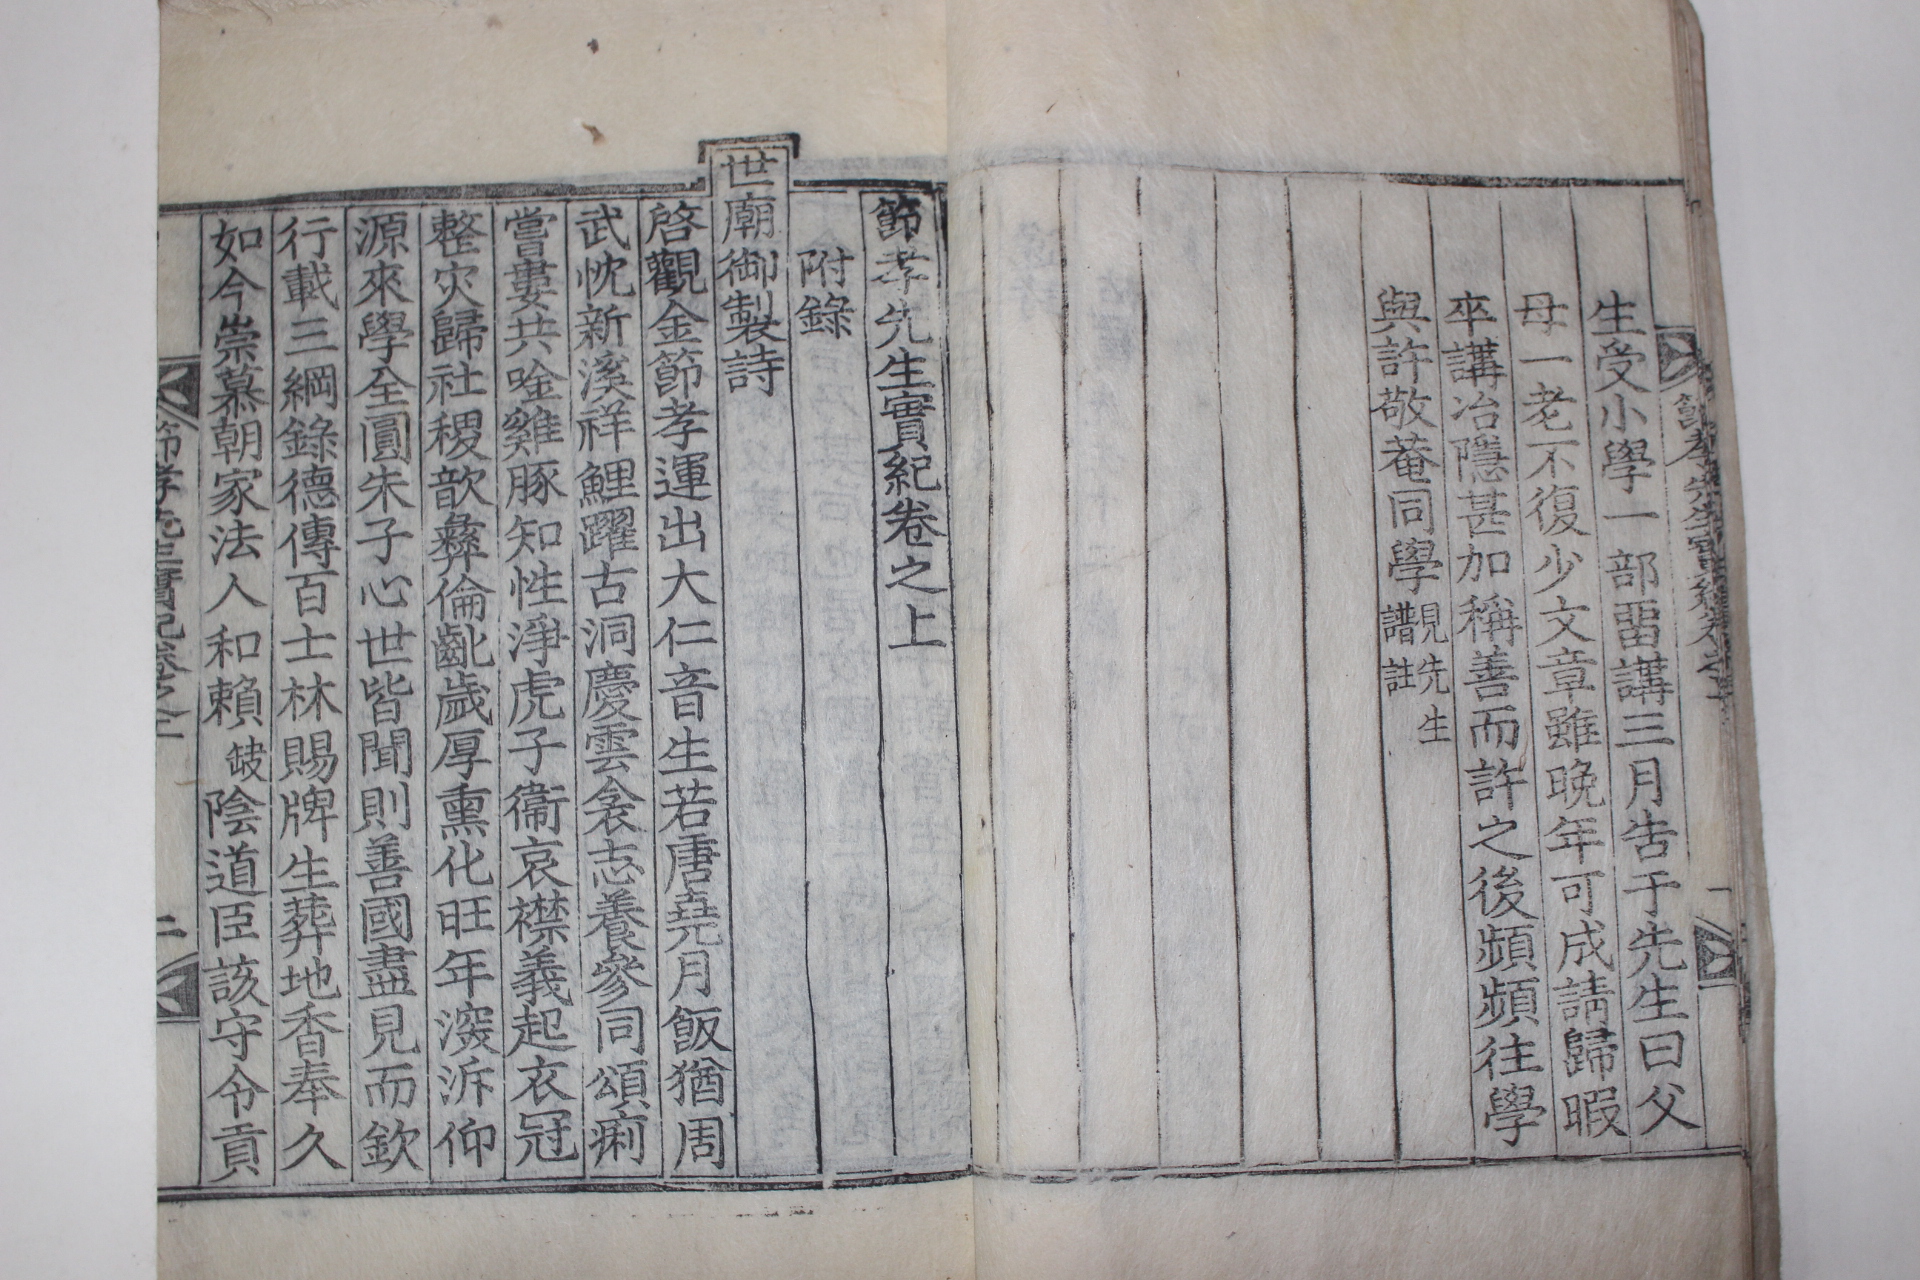 生受小學一部畱講三月告于先生曰父
母一老不復少文章雖晚年可成請歸暇
卒講冶隱甚加稱善而許之後頻頻往學
與許敬菴同學見先生譜註
節孝先生實紀卷之上
附錄
世廟御製詩
啓觀金節孝運出大仁音生若唐堯月飯猶周
武忱新溪祥鯉躍古洞慶雲衾志養參同頌痢
嘗婁共唫雞豚知性淨虎子衞哀襟義起衣冠
整灾歸社稷歆彝倫齔歲厚熏化旺年深泝仰
源來學全圓朱子心世皆聞則善國盡見而欽
行載三綱錄德傳百士林賜牌生葬地香奉久
如今崇慕朝家法人和賴缺陰道臣該守令貢
節孝先生實紀卷之上 二